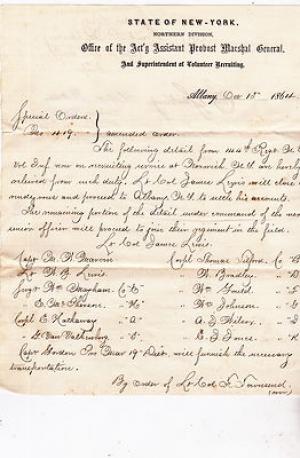 STATE OF NEW-YORK.
NORTHERN DIVISION,
Office of the Act'g Assistant Provost Marshal General,
And Superintendent of Volunteer Recruiting.
Albany, 1864.
Special Orders
No 419. amended order.
The following detail from 144th Regt N.Y.
Vol Inf now on recruiting service at N.Y. are hereby
relieved from such duty. Lt Col James Lewis will close
rendezvous and proceed to Albany N.Y. to settle his accounts.
The remaining portion of the detail under command of the next
senior officer will proceed to join their regiment in the field.
Lt Col James Lewis.
Capt Corpl Thomas Co
Lt Lewis " Bradley "
Sergt Wm Co " Wm "
" " " Wm Johnson "
Corpl E Hathaway " "A" " A. "
" " " E. Jones "
Capt Gordon Pro Mar 19" Dist. will furnish the necessary
transportation.
By order of Lt Col F. Townsend